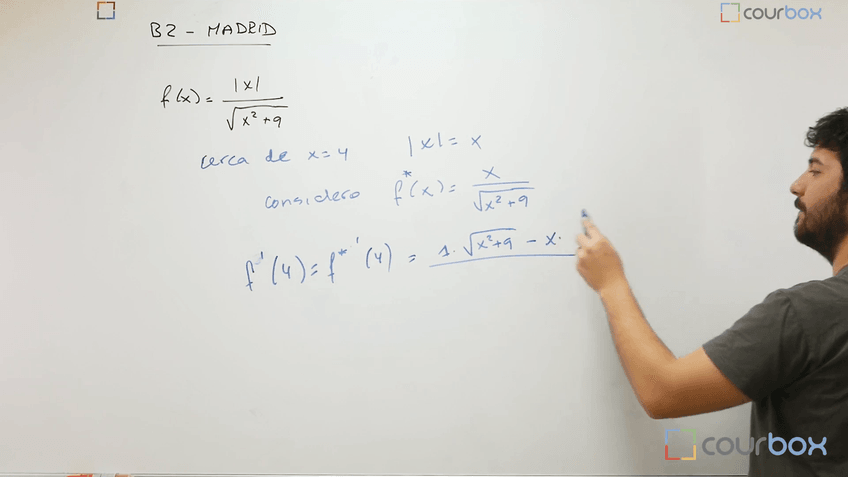 courbox
B2 - MADRID
f(x) = |x| / √(x²+9)
cerca de x=4 |x| = x
considero f*(x) = x / √(x²+9)
f'(4) = f*'(4) = 1·√(x²+9) - x·
courbox